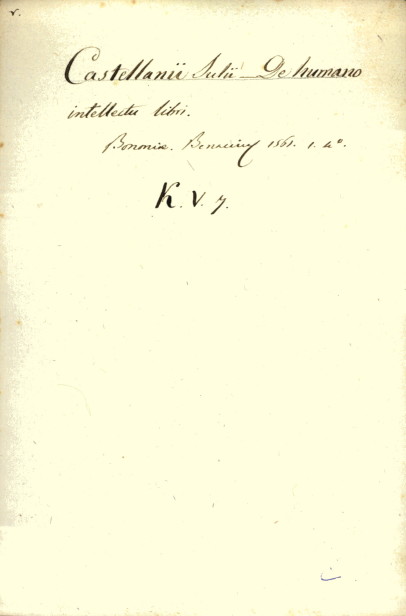 r.
Castellanii Julii – De humano
intellectu libri.
Bononiæ. Benaccii 1561. 1. 4°.
K. V. 7.